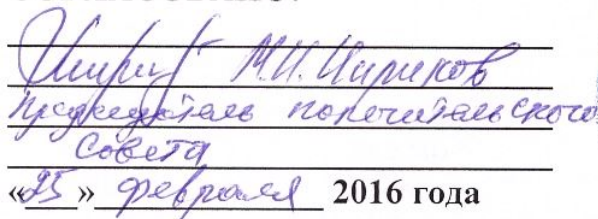 М.И. Кириков
председатель попечительского
совета
«25» февраля 2016 года